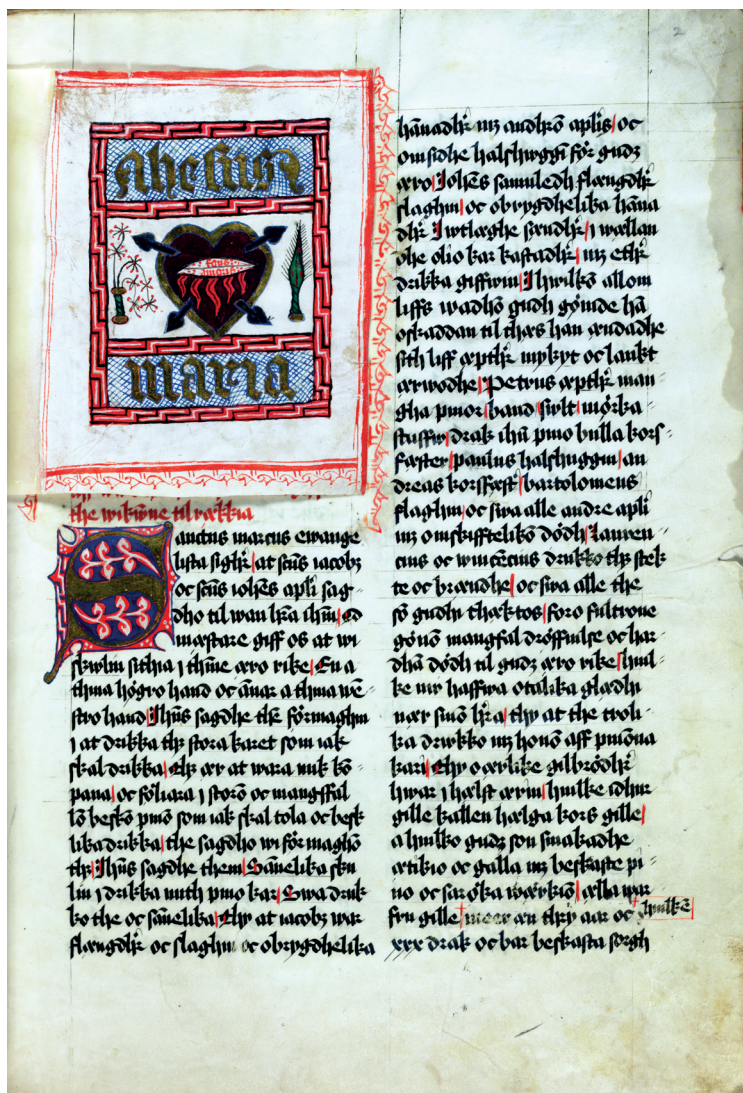 2
Ihesus
maria
the wikūne til rækkia
Sanctus marcus ewange
lista sighr at scūs iacobz
oc scūs iohēs apli sag
dho til wan hr̄a ihm
mæstare giff os at wi
skwlin sithia j thine æro rike En a
thina högro hand oc annar a thina wē
stro hand Jhūs sagdhe thē förmaghin
j at drikka thz stora karet som iak
skal drikka Thz ær at wara mik kō
pana oc föliara j storō oc mangffal
lō beskō pinō som iak skal tola oc besk
lika drikka the sagdho wi förmaghō
thz Jhūs sagdhe them Sānelika sku
lin j drikka mith pino kar Swa druk
ko the oc sānelika Thy at iacobz war
flængdhr oc slaghin oc obrygdhelika
hānadhr mz androm aplis oc
omsidhe halshuggin för gudz
æro Johēs samuledh flængdhr
slaghin oc obrygdhelika hāna
dhr J wtlæghe sændhr j wællan
dhe olio kar kastadhr mz ethr
drikka giffwin J hwilkō allom
liffs wadhō gudh gömde hā
oskaddan til thæs han ændadhe
sith liff æpthr mykyt oc lankt
ærwodhe Petrus æpthr man
gha pinor band swlt mörka
stuffw drak ihū pino bulla kors
fæster paulus halshuggin an
dreas korsfæst bartolomeus
flaghin oc swa alle andre apli
mz omskiffteliko dödh Lauren
cius oc wincēcius drukko thz stek
te oc brændhe oc swa alle the
sō gudhi thæktos foro fultrone
gönō mangfal dröffuilse oc har
dhā dödh til gudz æro rike huil
ke nw haffwa otalika glædhi
nær sinō hr̄a thy at the troli
ka drwkko mz honō aff pinōna
kari Thy o ærlike gilbrödhr
hwar j hælst ærin hwilke idhur
gille kallen hælga kors gille
a hwilko gudz son smakadhe
ætikio oc galla mz beskaste pi
no oc saroka wærkiō ælla war
fru gille meer æn thry aar oc hwilkē
xxx drak oc bar beskasta sorgh